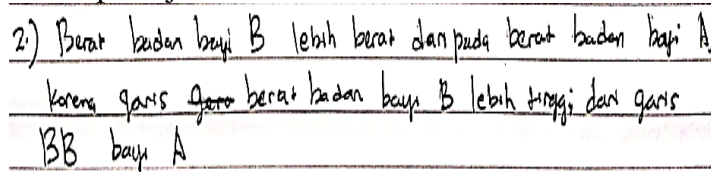 2.) Berat badan bayi B lebih berat dari pada berat badan bayi A
karena garis garo berat badan bayi B lebih tinggi dari garis
BB bayi A